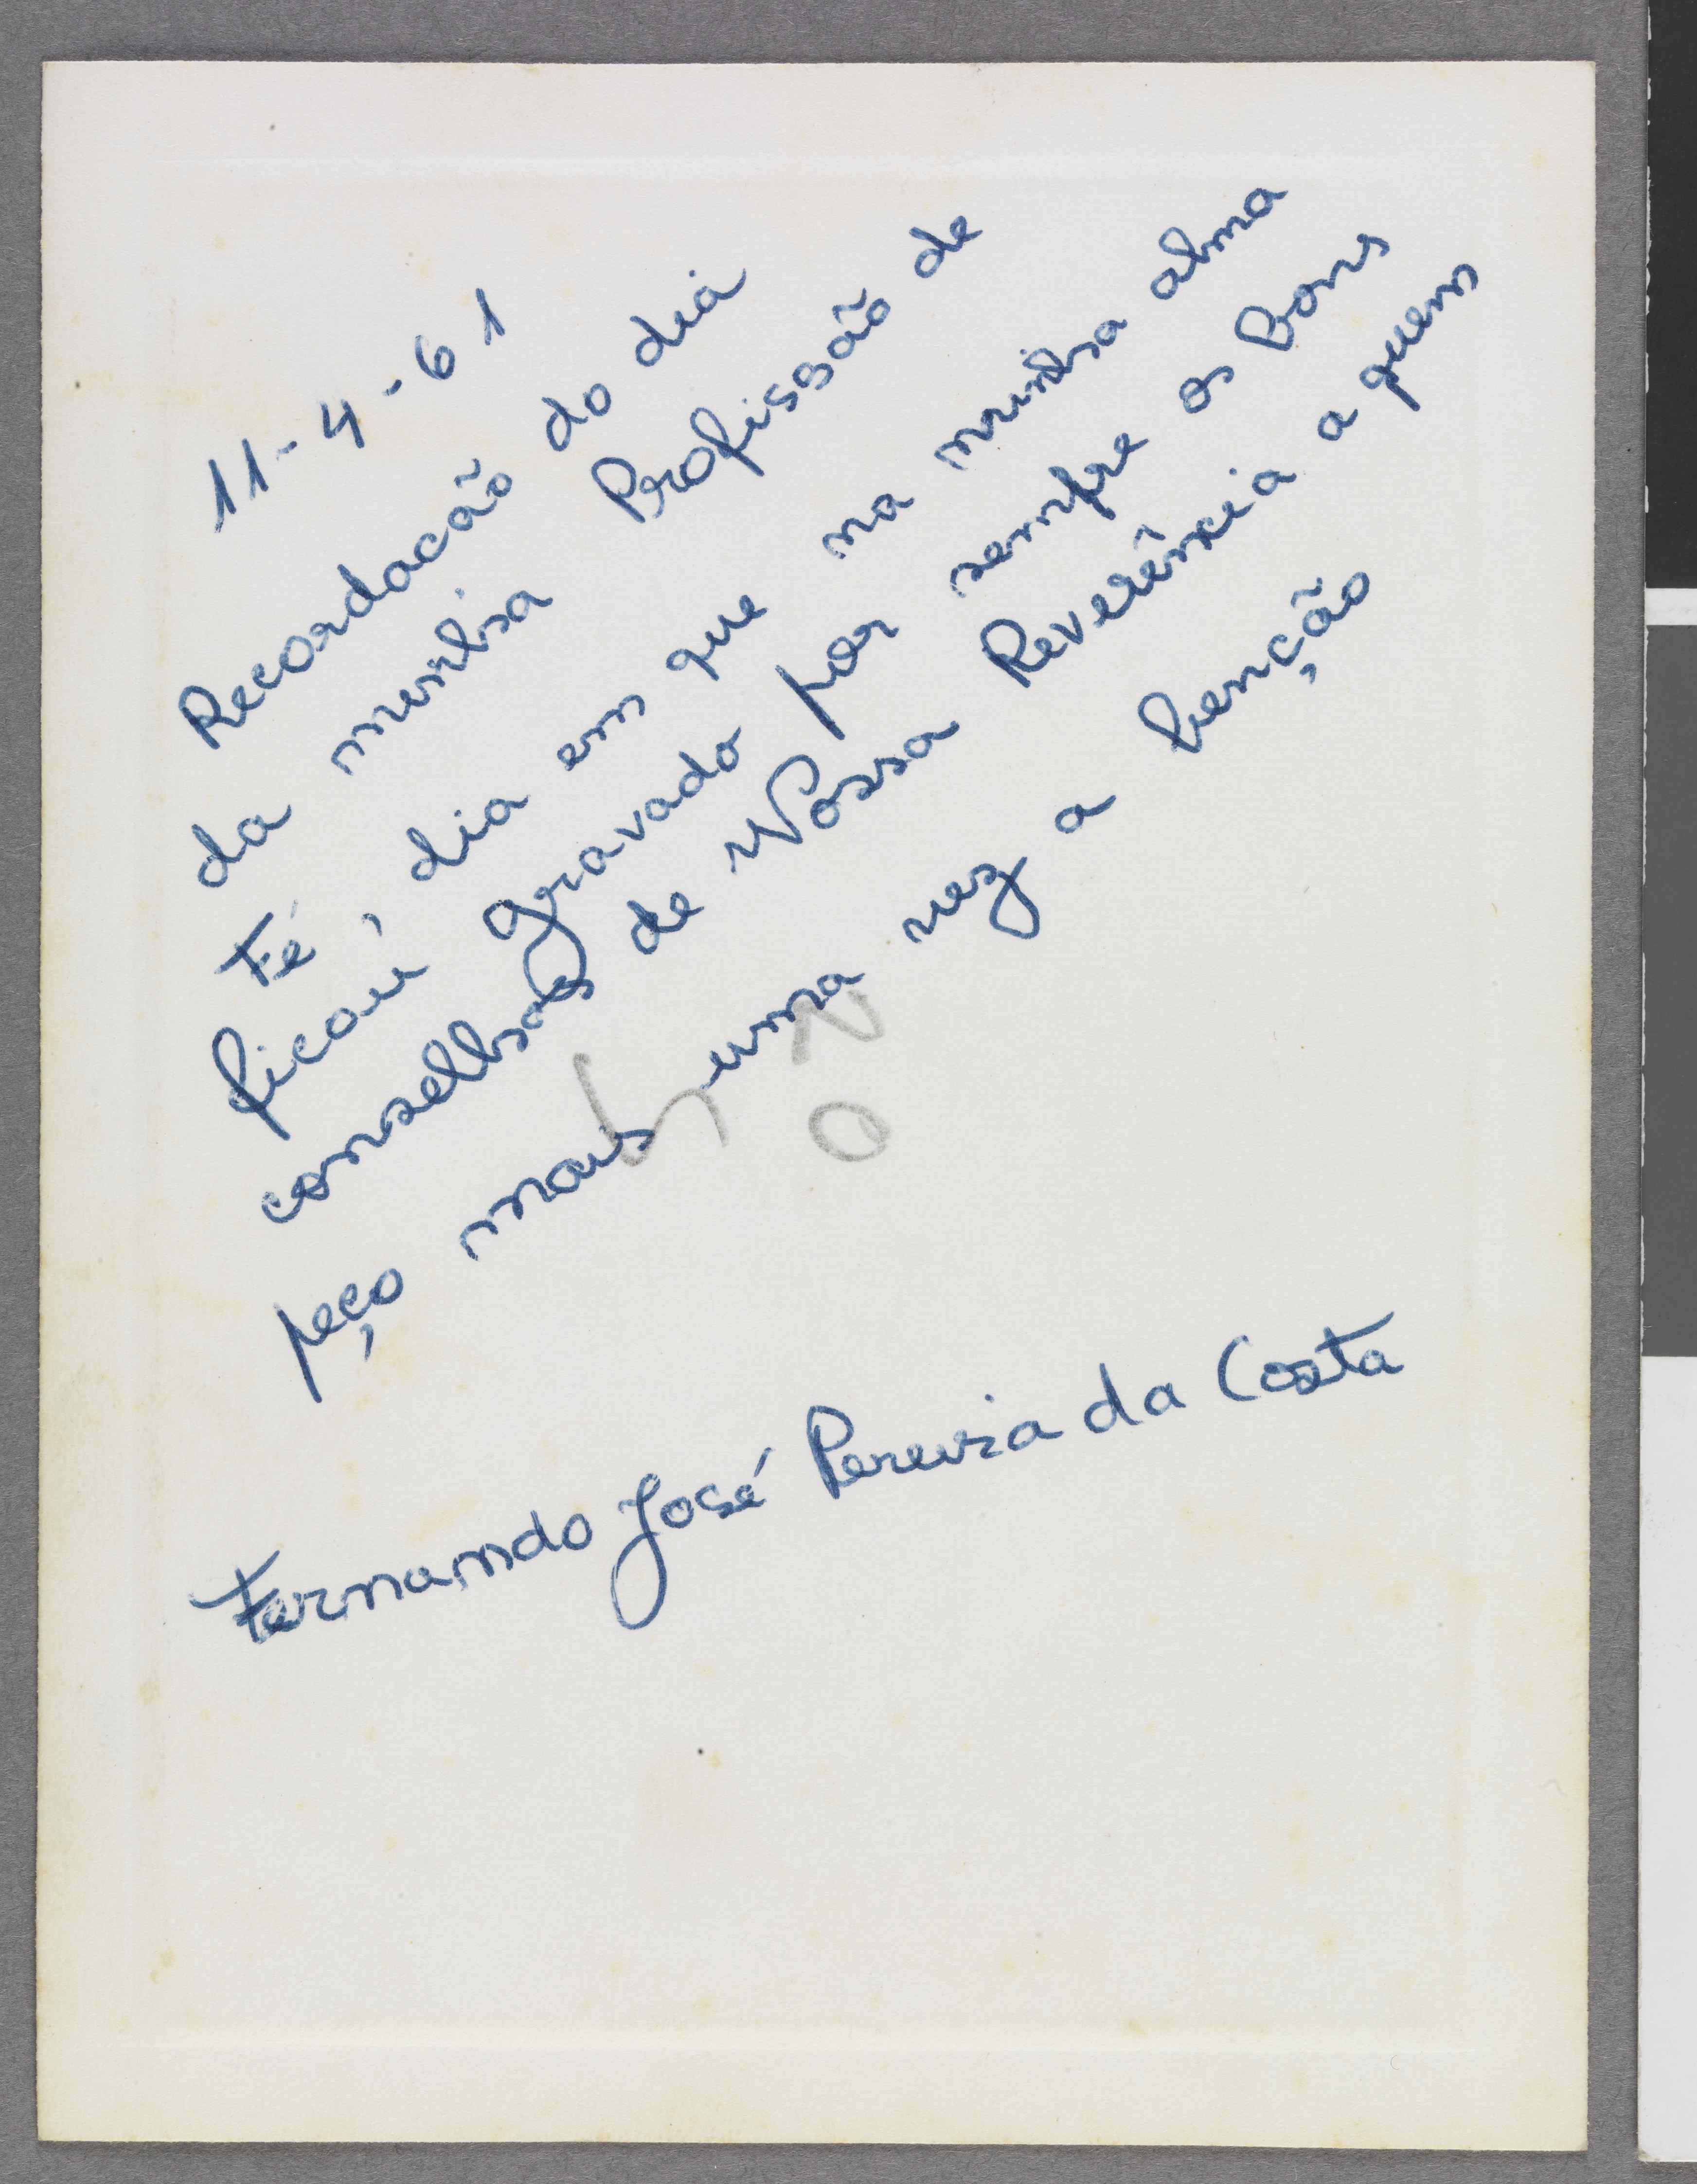 11-4-61
Recordacão do dia
da minha Profissão de
Fé, dia em que na minha alma
ficou gravado por sempre os bons
conselhos de Vossa Reverência a quem
peço mais uma vez a benção
Fernando José Pereira da Costa